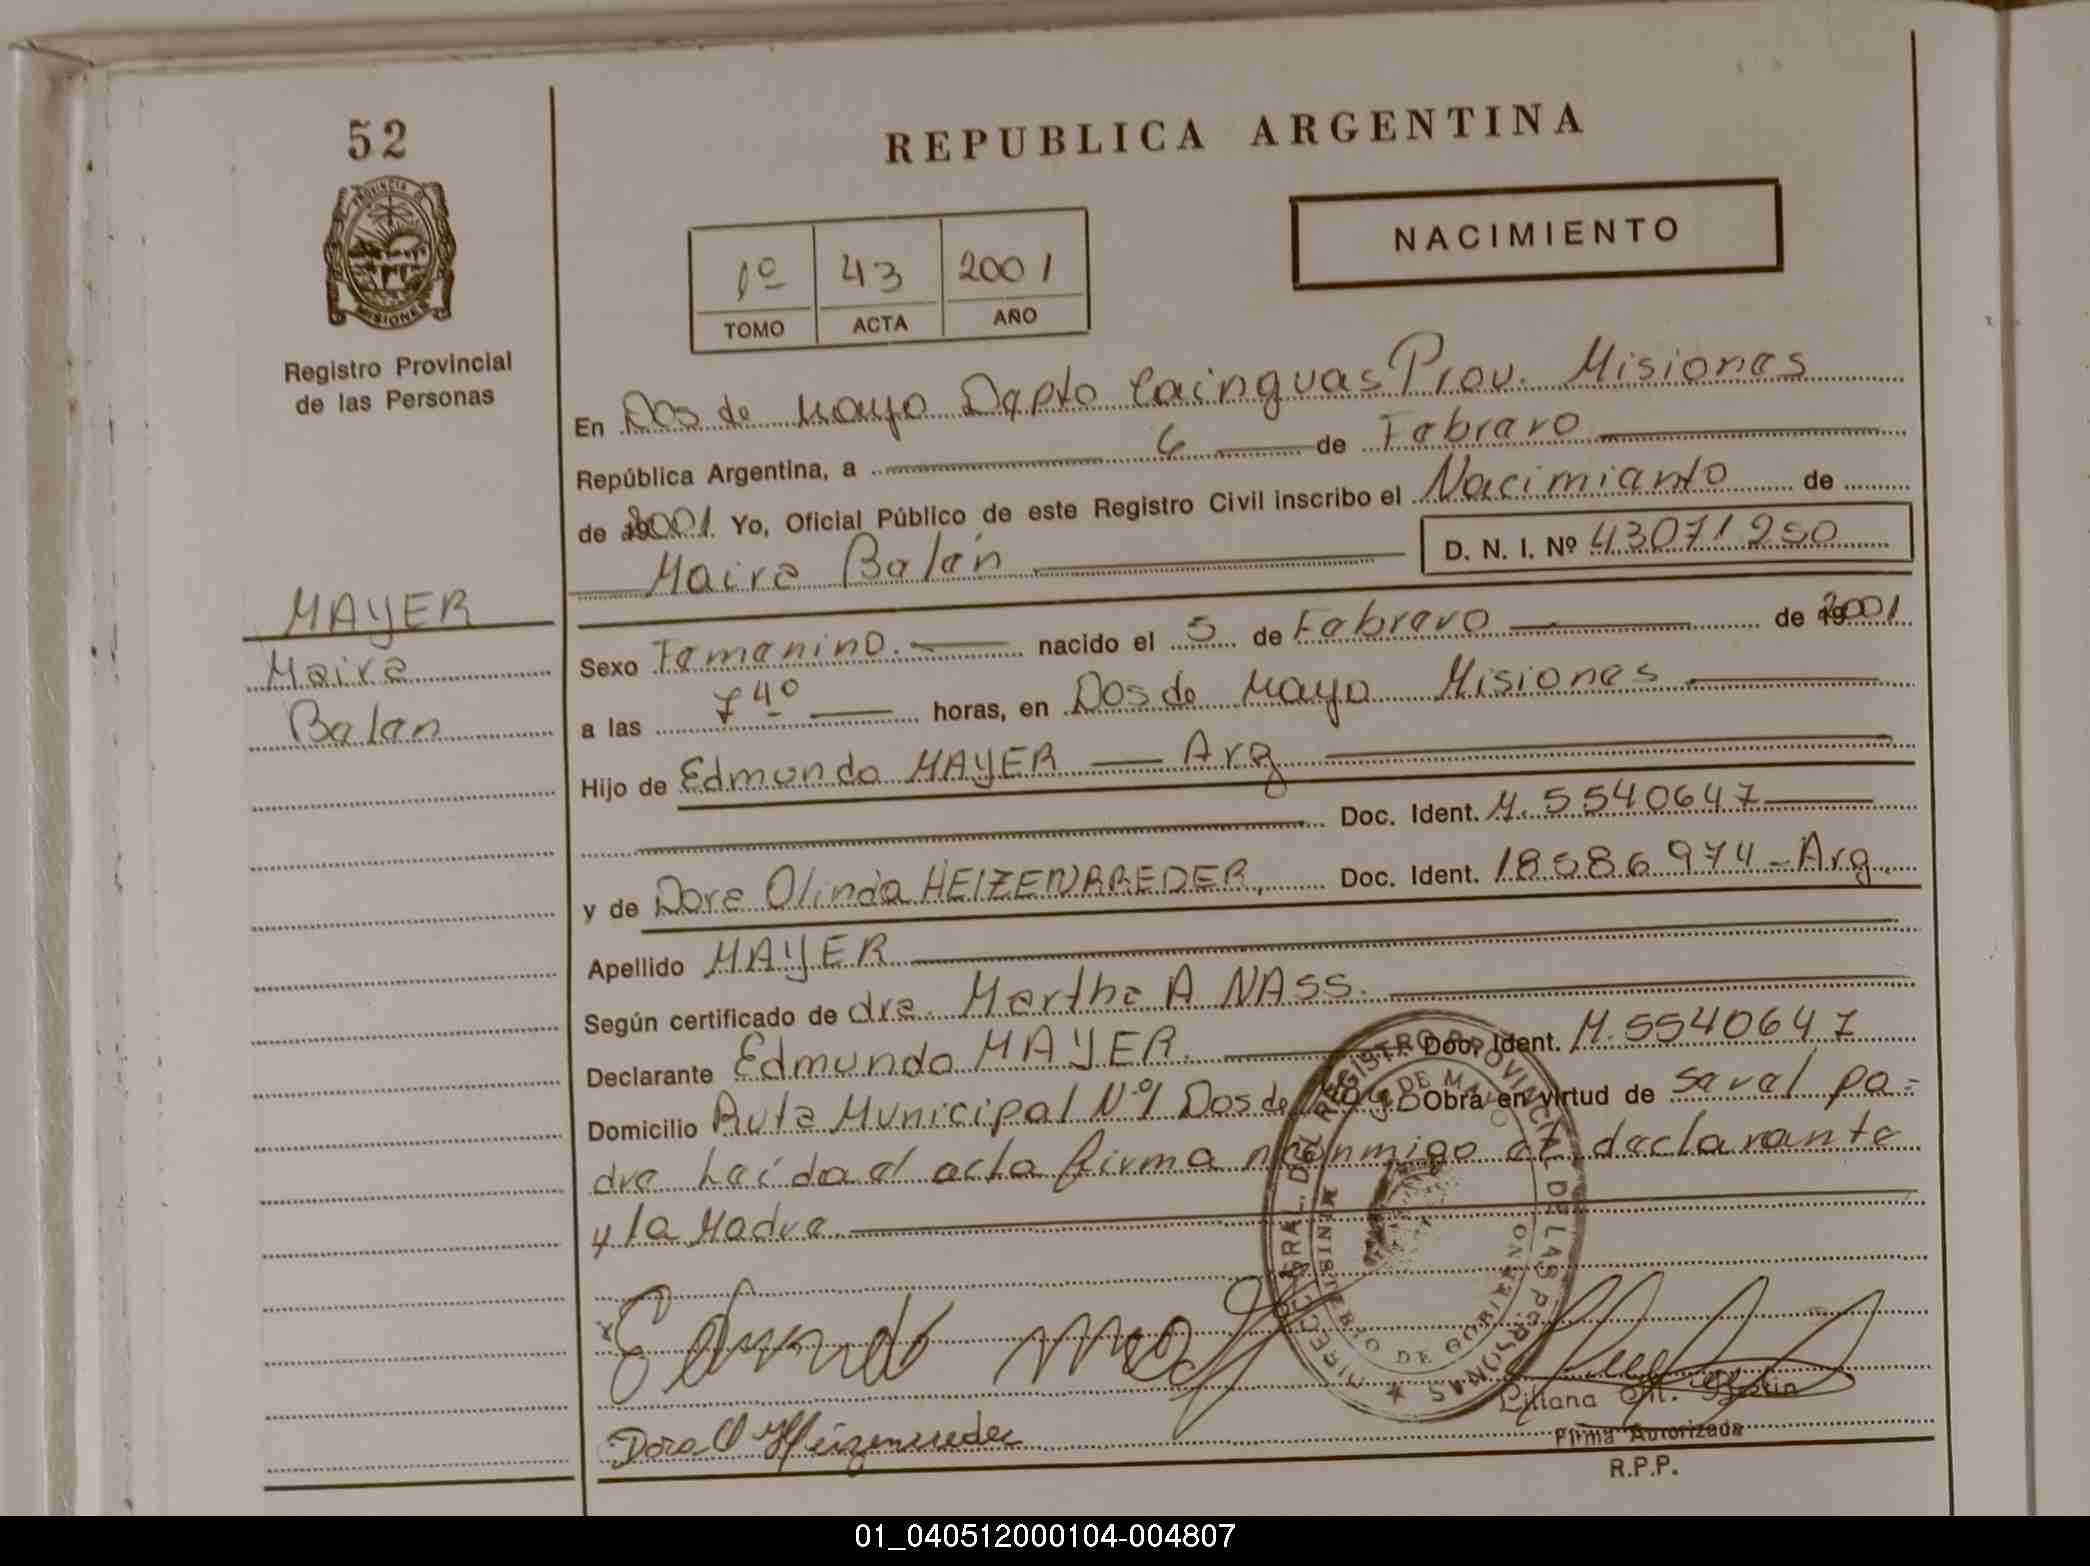 52
REPUBLICA ARGENTINA
PROVINCIA D
MISIONES
Registro Provincial
de las Personas
1º 43 2001
TOMO ACTA AÑO
NACIMIENTO
En Dos de Mayo Dpto Cainguas Prov. Misiones
República Argentina, a 6 de Febrero
de 2001. Yo, Oficial Público de este Registro Civil inscribo el Nacimiento de
Maira Belén D. N. I. Nº 43071250
MAYER
Maira
Belen
Sexo Femenino. nacido el 5 de Febrero de 2001
a las 7 40 horas, en Dos de Mayo Misiones
Hijo de Edmundo MAYER Arg
Doc. Ident. M. 5540647
y de Dora Olinda HEIZENRREDER, Doc. Ident. 18586974 - Arg.
Apellido MAYER
Según certificado de dra. Martha A NASS.
Declarante Edmundo MAYER. Doc. Ident. M. 5540647
Domicilio Ruta Municipal Nº1 Dos de Mayo Obra en virtud de ser el pa=
dre Leída el acta firma conmigo el declarante
y la Madre.
DIRECC GRAL. DEL REGISTRO PROVINCIAL DE LAS PERSONAS
DOS DE MAYO
MINISTERIO DE GOBIERNO
Edmundo May
Dora O Heizenreder
Liliana M.
Firma Autorizada
R.P.P.
01_040512000104-004807